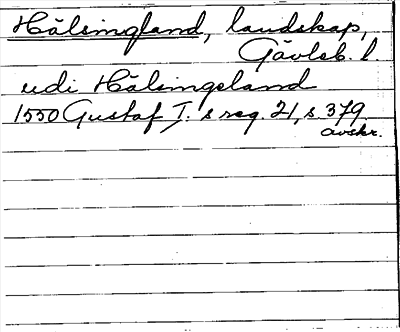 Hälsingland, landskap,
Gävleb. l.
udi Hälsingeland
1550 Gustaf I:s reg. 21, s 379
avskr.